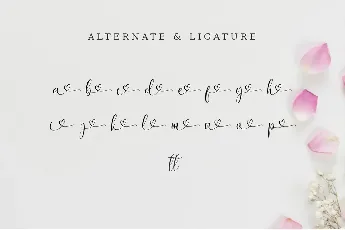 ALTERNATE & LIGATURE
a b c d e f g h
i j k l m n o p
tt